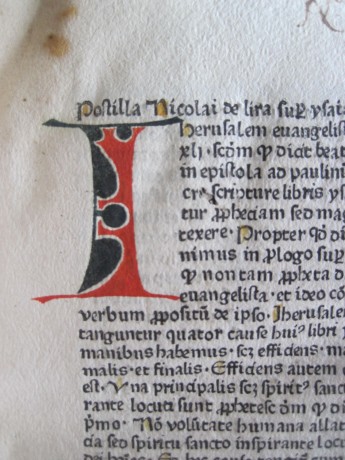 Postilla Nicolai de lira sup̱ ysa
I herusalem euangelist
xlj · scḋm ꝙ dicit beat
in epistola ad paulinū
cre scripture libris ys
tur ꝓphetiam sed ma
texere · Propter qḋ di
nimus in ꝓlogo sup̱
ꝙ non tam ꝓpheta d
euangelista · et ideo cō
verbum ꝓpositū de ipso · Iherusalem
tanguntur quatuor cause huiꝰ libri
manibus habemus · scꝫ efficiens · m
malis · et finalis · Efficiens autem
est · Vna principalis scꝫ spiritꝰ sanct
rante locuti sunt ꝓphete scḋm ꝙ d
p̄mo · Nō volūtate humana alla
cia sed spiritu sancto inspirante locu